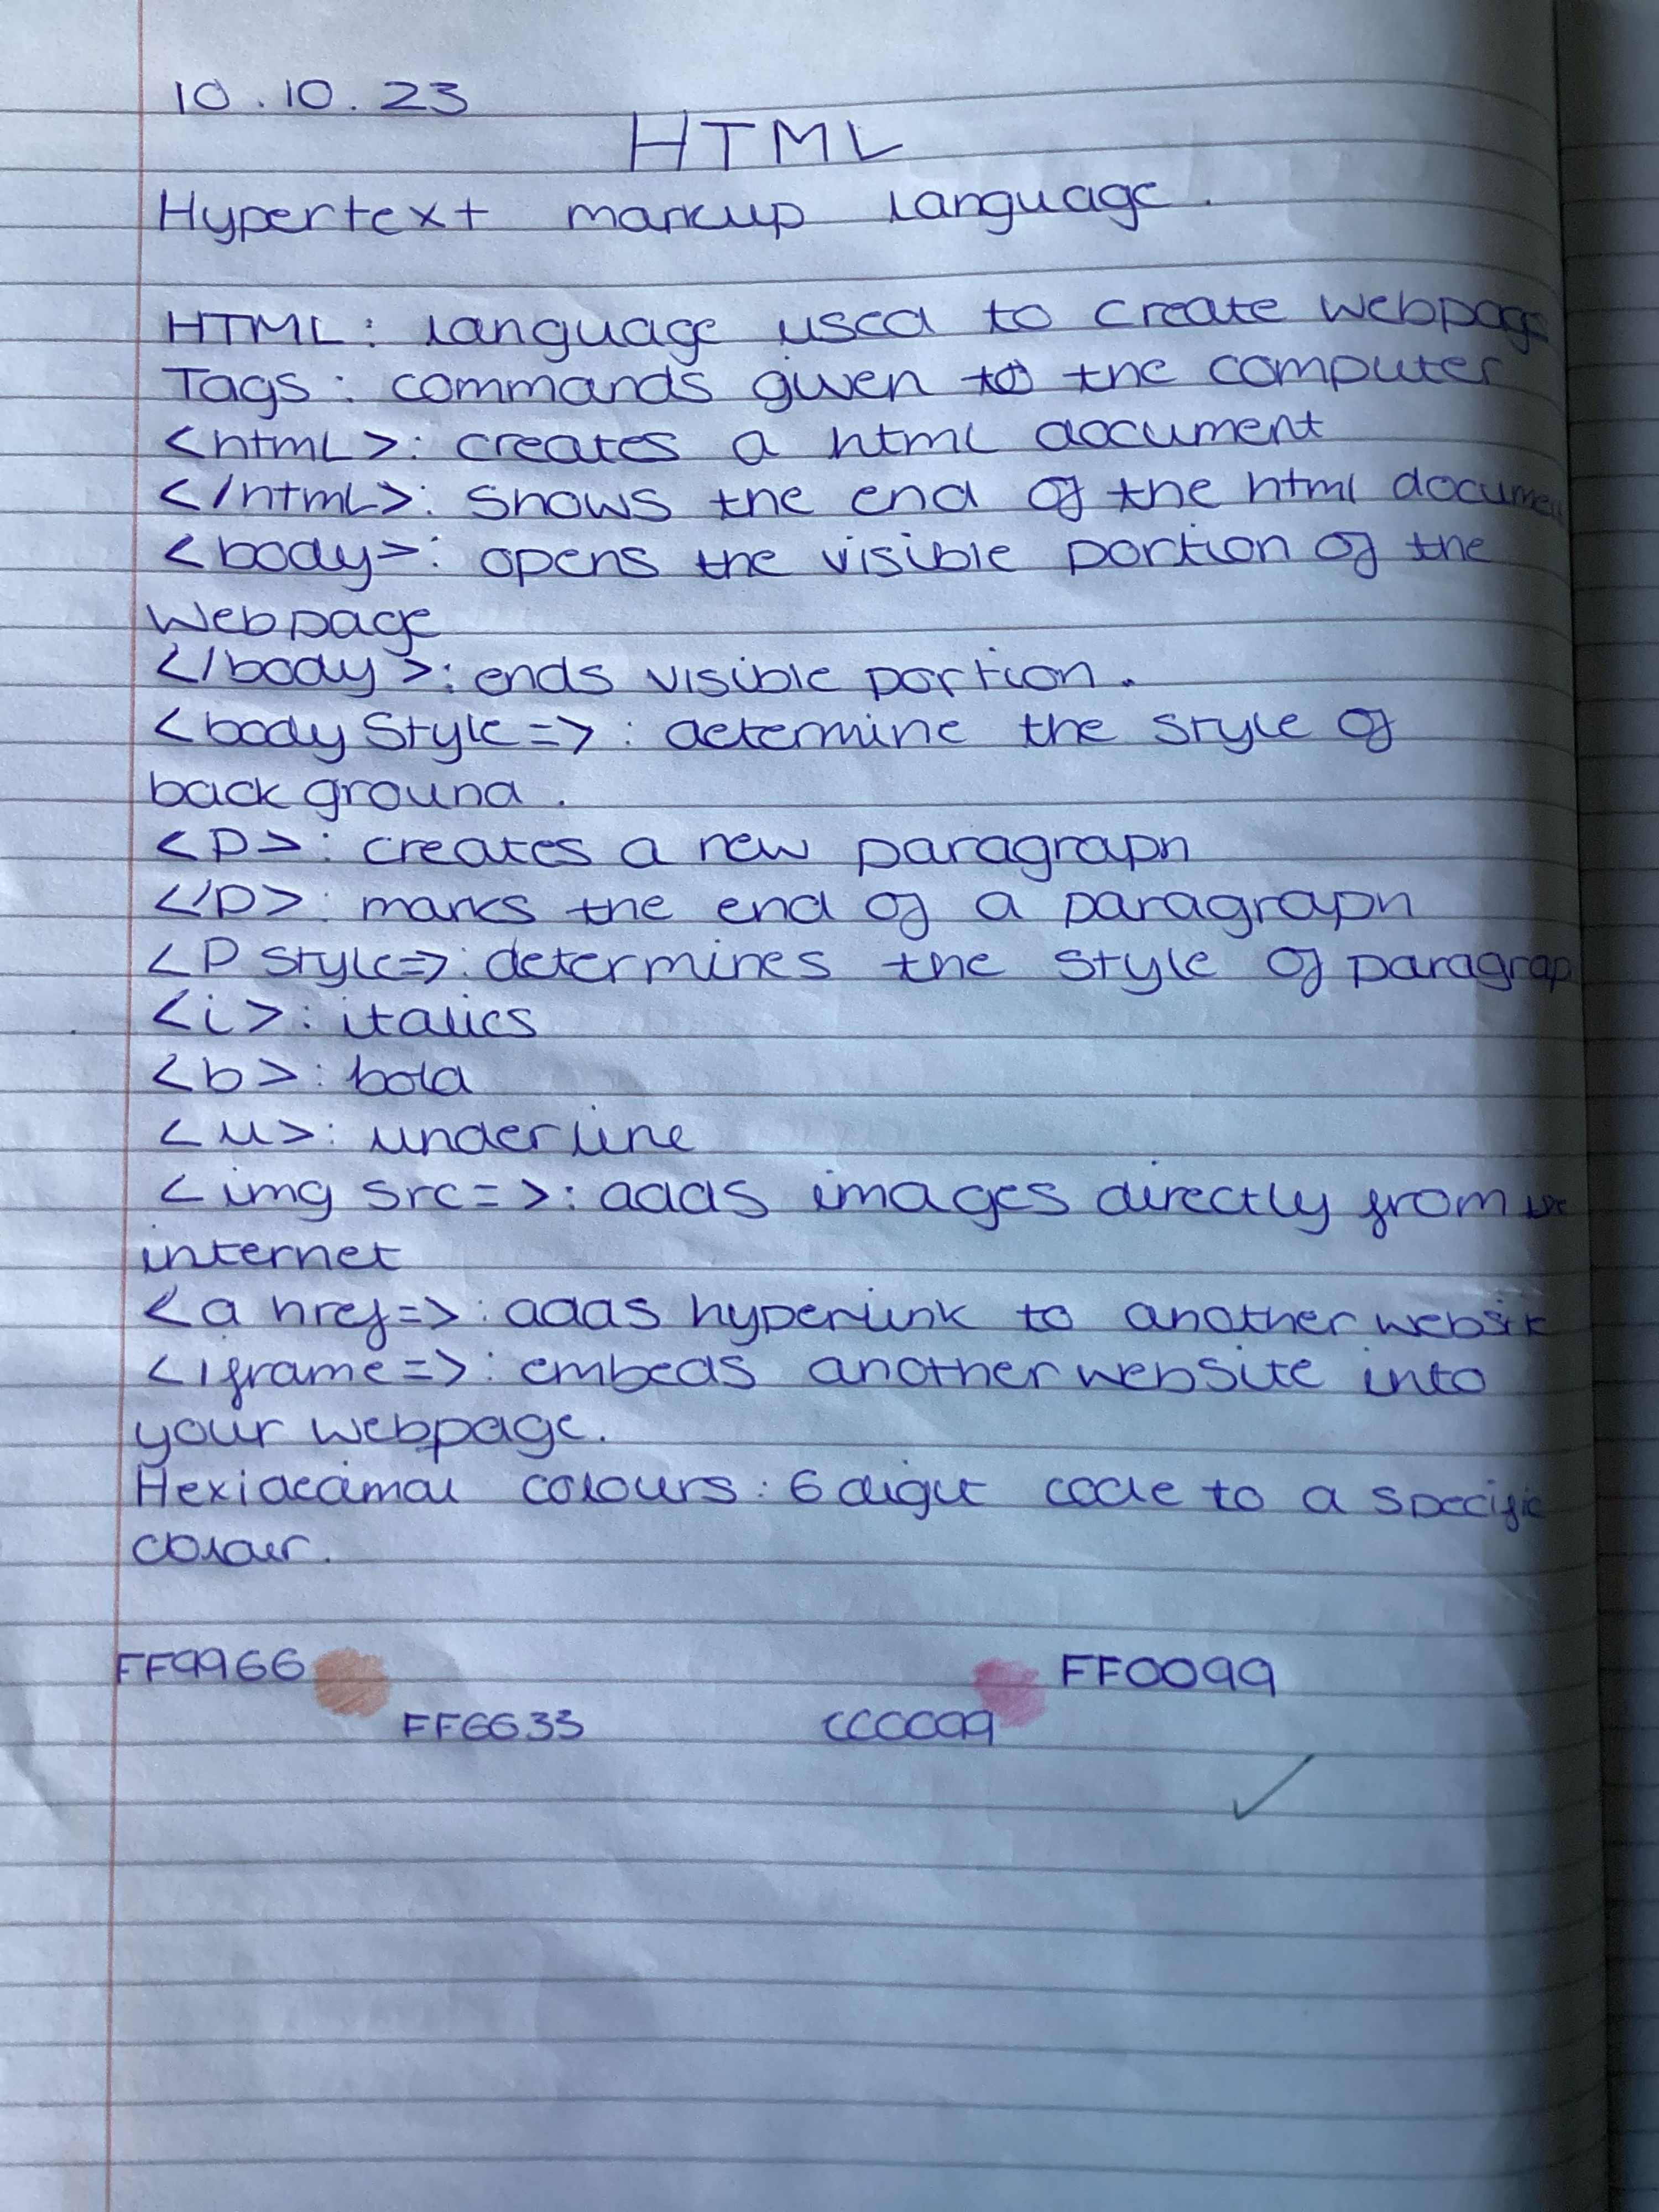 10.10.23
HTML
Hypertext markup language.
HTML: language used to create webpage
Tags: commands given to the computer
<html>: creates a html document
</html>: shows the end of the html documen
<body>: opens the visible portion of the
Webpage
</body>: ends visible portion.
<body Style=>: determine the style of
background.
<P>: creates a new paragraph
</P>: marks the end of a paragraph
<P style=>: determines the style of paragrap
<i>: italics
<b>: bold
<u>: underline
<img src=>: adds images directly from the
internet
<a href=>: adds hyperlink to another website
<iframe=>: embeds another website into
your webpage.
Hexidecimal colours: 6 digit code to a specific
colour.
FF9966 FF0099
FF6633 CC0099